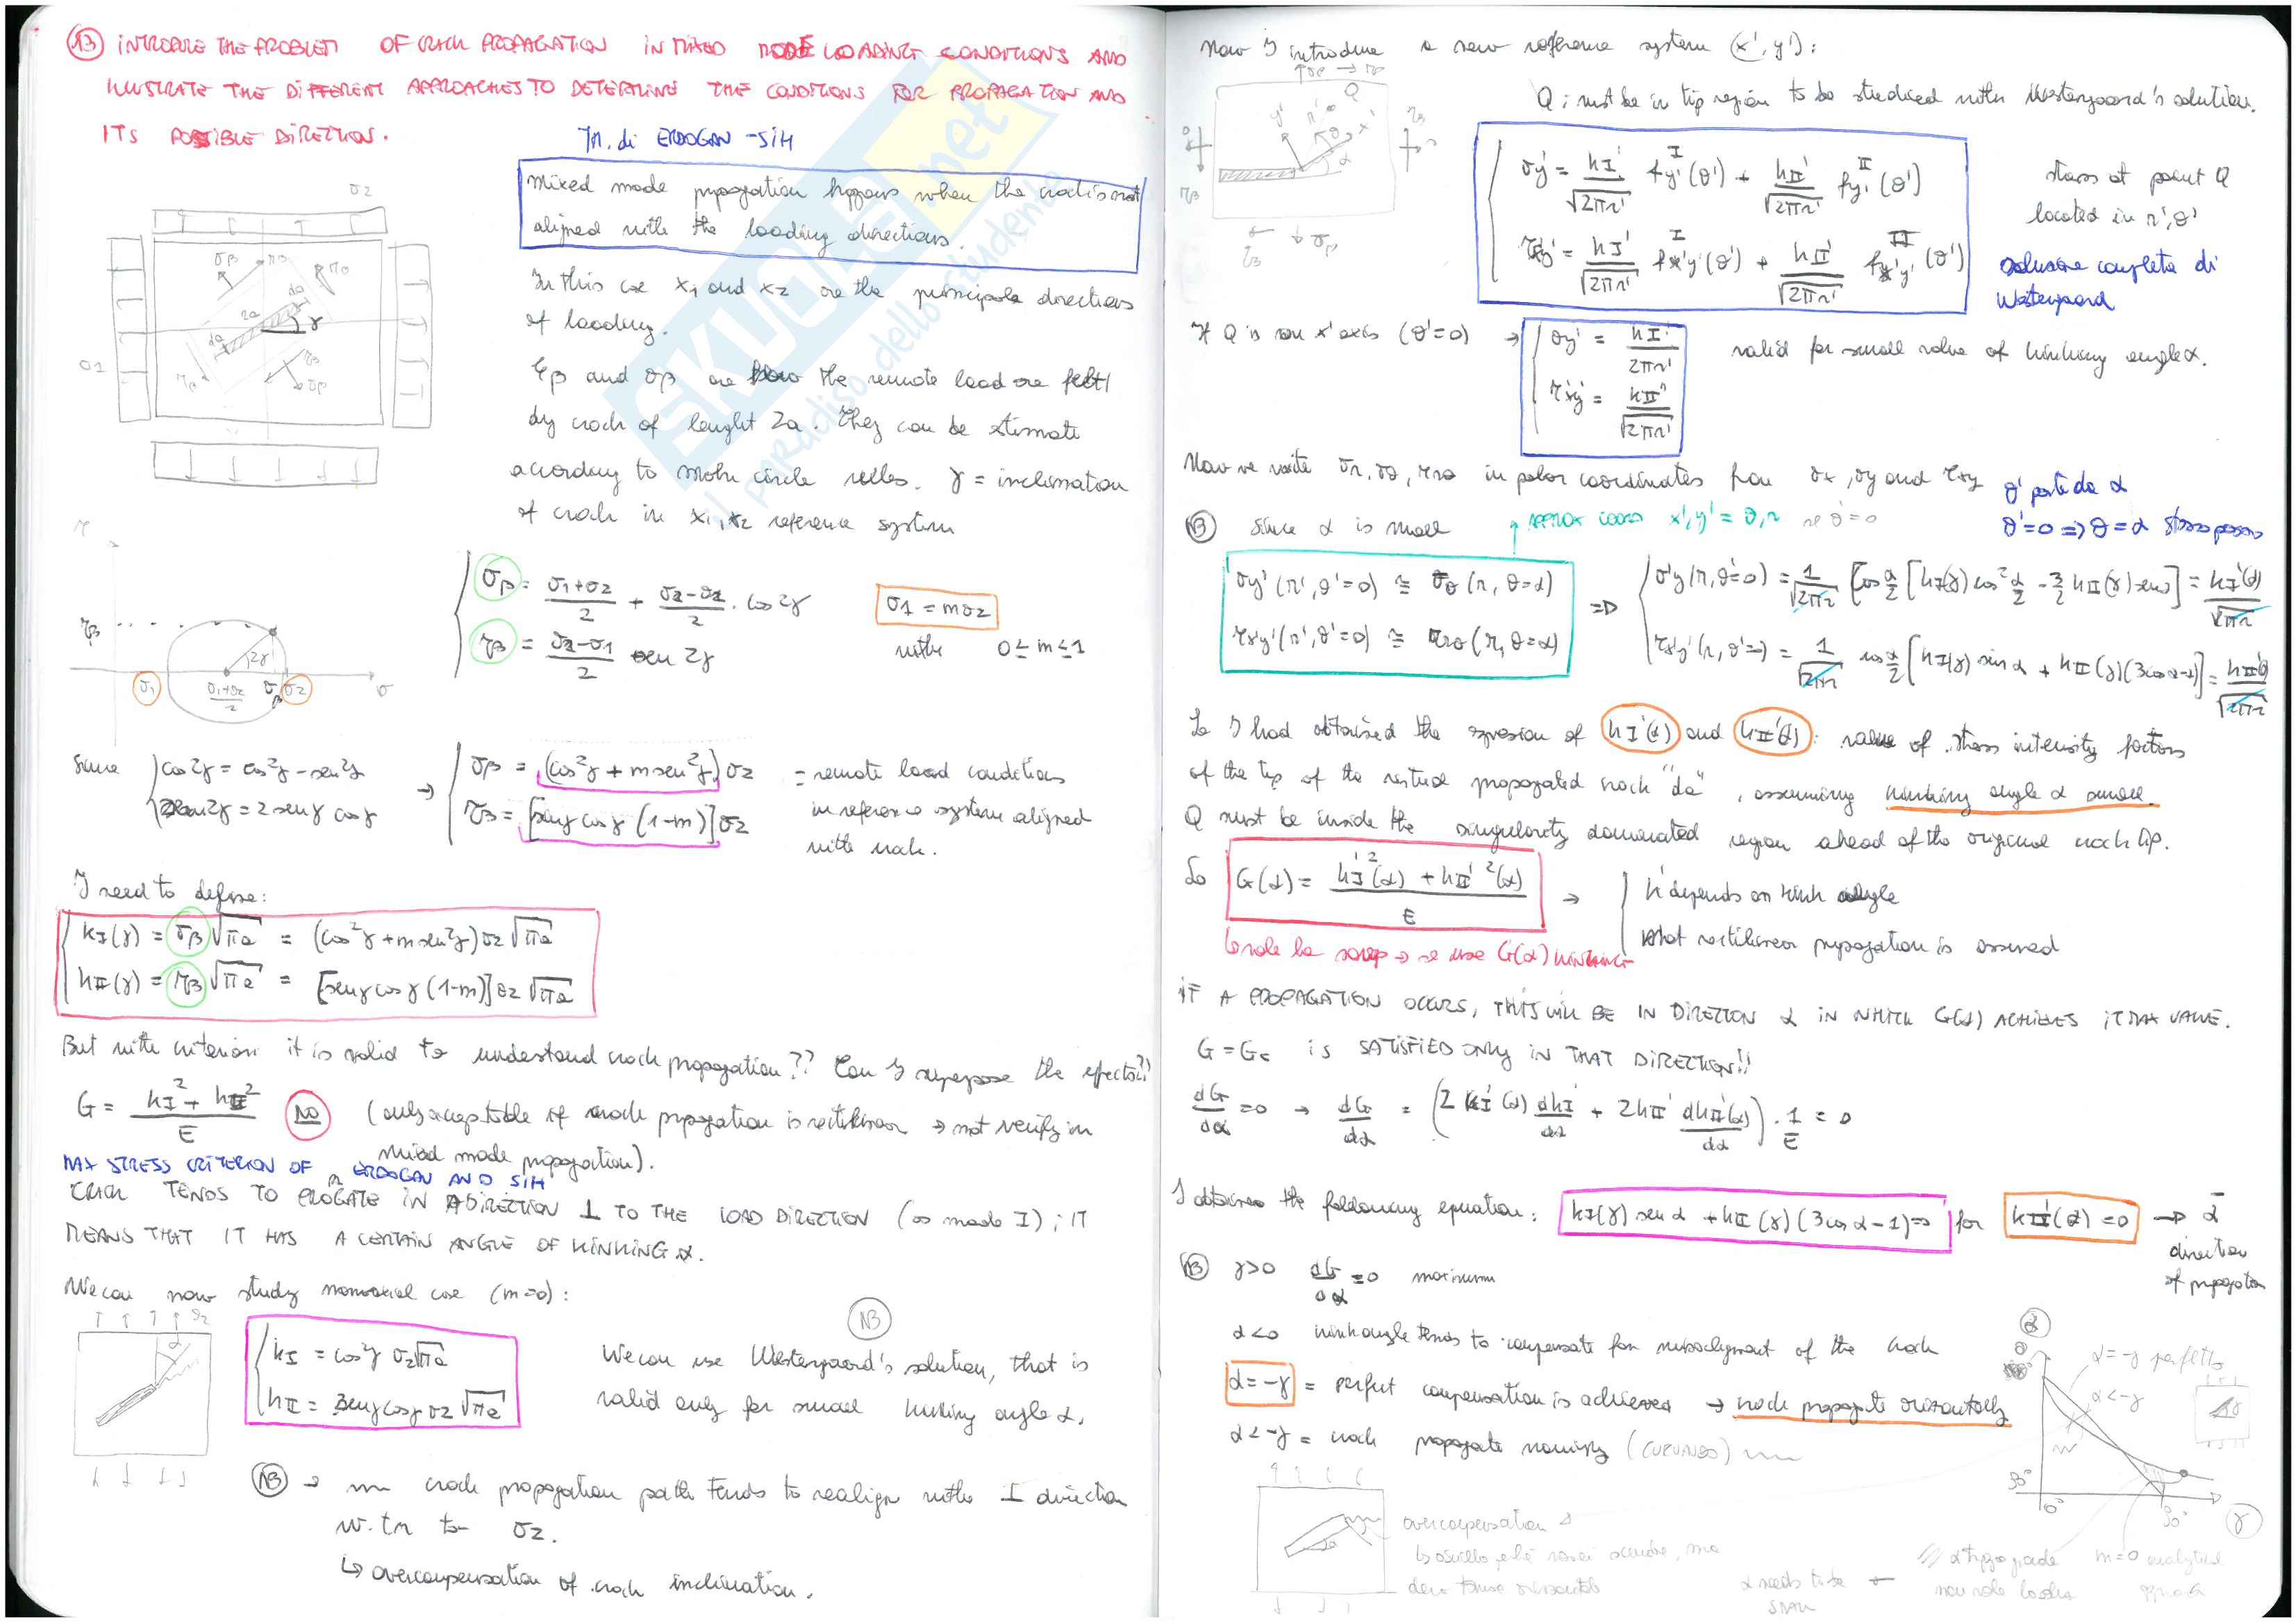 13 INTRODUCE THE PROBLEM OF CRACK PROPAGATION IN MIXED MODE LOADING CONDITIONS AND
ILLUSTRATE THE DIFFERENT APPROACHES TO DETERMINE THE CONDITIONS FOR PROPAGATION AND
ITS POSSIBLE DIRECTION.
TH. di ERDOGAN - SIH
Mixed mode propagation happens when the crack is not
aligned with the loading directions.
In this case x1 and x2 are the principale directions
of loading.
τβ and σβ are how the remote load are felt
by crack of lenght 2a. They can be stimate
according to Mohr circle rules. γ = inclination
of crack in x1, x2 reference system
σβ = (σ1+σ2)/2 + (σ2-σ1)/2 · cos 2γ
τβ = (σ2-σ1)/2 sen 2γ
σ1 = mσ2
with 0 ≤ m ≤ 1
Since cos2γ = cos²γ - sen²γ
sen2γ = 2 senγ cosγ
→ σβ = (cos²γ + m sen²γ) σ2
τβ = [senγ cosγ (1-m)] σ2
= remote load conditions
in reference system aligned
with crack.
I need to define:
kI(γ) = σβ √πa = (cos²γ + m sen²γ) σ2 √πa
kII(γ) = τβ √πa = [senγ cosγ (1-m)] σ2 √πa
But with criterion it is valid to understand crack propagation?? Can I superpose the effects??
G = (kI² + kII²)/E NO (only acceptable if crack propagation is rectilinear → not verify in
mixed mode propagation).
MAX STRESS CRITERION OF ERDOGAN AND SIH
CRACK TENDS TO PROPAGATE IN A DIRECTION ⊥ TO THE LOAD DIRECTION (as mode I); IT
MEANS THAT IT HAS A CERTAIN ANGLE OF KINKING α.
We can now study monoaxial case (m=0):
kI = cos²γ σ2 √πa
kII = senγ cosγ σ2 √πa
NB
We can use Westergaard's solution, that is
valid only for small kinking angle α.
NB → crack propagation path tends to realign with I direction
w.r.t. to σ2.
↳ overcompensation of crack inclination.
Now I introduce a new reference system (x', y'):
Q: must be in tip region to be studied with Westergaard's solution.
σy' = kI'/√2πr' fy'^I (θ') + kII'/√2πr' fy'^II (θ')
τx'y' = kI'/√2πr' fx'y'^I (θ') + kII'/√2πr' fx'y'^II (θ')
stress at point Q
located in r', θ'
soluzione completa di
Westergaard
If Q is on x' axis (θ'=0) → σy' = kI'/2πr'
τx'y' = kII'/√2πr'
valid for small value of kinking angle α.
Now we write σr, σθ, τrθ in polar coordinates from σx, σy and τxy
θ' parte da α
θ'=0 ⇒ θ=α
NB Since α is small
APPROX x', y' = θ, r se θ'=0
σy'(r', θ'=0) ≅ σθ(r, θ=α)
τx'y'(r', θ'=0) ≅ τrθ(r, θ=α)
⇒ σ'y(r, θ'=0) = 1/√2πr cos α/2 [kI(γ) cos² α/2 - 3/2 kII(γ) senα] = kI'(α)/√2πr
τx'y'(r, θ'=0) = 1/√2πr cos α/2 [kI(γ) sin α + kII(γ)(3cos α-1)] = kII'(α)/√2πr
So I had obtained the expression of kI'(α) and kII'(α): value of stress intensity factors
of the tip of the virtual propagated crack "da", assuming kinking angle α small.
Q must be inside the singularity dominated region ahead of the original crack tip.
So G(α) = (kI'²(α) + kII'²(α))/E → k' depends on kink angle
that rectilinear propagation is assured
IF A PROPAGATION OCCURS, THIS WILL BE IN DIRECTION α IN WHICH G(α) ACHIEVES IT MAX VALUE.
G = Gc IS SATISFIED ONLY IN THAT DIRECTION!!
dG/dα = 0 → dG/dα = (2 kI'(α) dkI'/dα + 2kII' dkII'(α)/dα) · 1/E = 0
I obtained the following equation: kI(γ) sen α + kII(γ)(3cos α - 1) = 0 for kII'(α) = 0 → ᾱ
direction
of propagation
NB γ>0 dG/dα = 0 maximum
α<0 kink angle tends to compensate for misalignment of the crack
α = -γ = perfect compensation is achieved → crack propagate orizontally
α < -γ = crack propagate
α = -γ perfetto
α < -γ
90°
0°
90°
γ
overcompensation
m=0 analytical
α needs to be
SMALL
SKUOLA.net
il paradiso dello studente